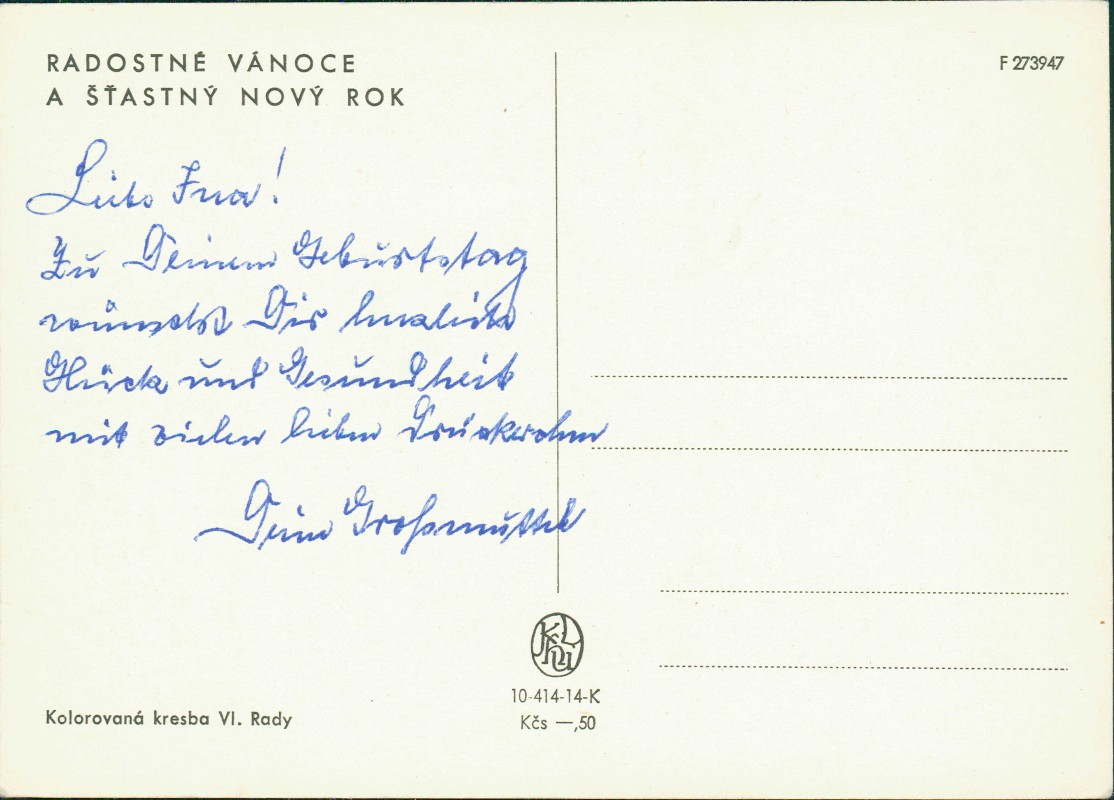 RADOSTNÉ VÁNOCE
A ŠŤASTNÝ NOVÝ ROK
F 273947
Liebe Ina!
Zu Deinem Geburtstag
wünscht Dir
Glück und Gesundheit
mit vielen lieben
Deine Großmutter
10-414-14-K
Kčs —,50
Kolorovaná kresba Vl. Rady